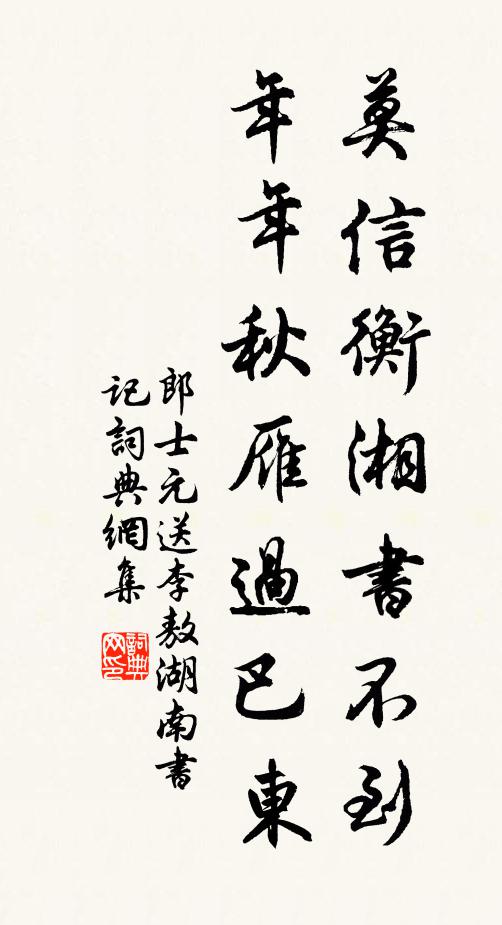 莫信衡湘書不到
年年秋雁過巴東
郎士元送李敖湖南書
記詞典網集
詞典网印